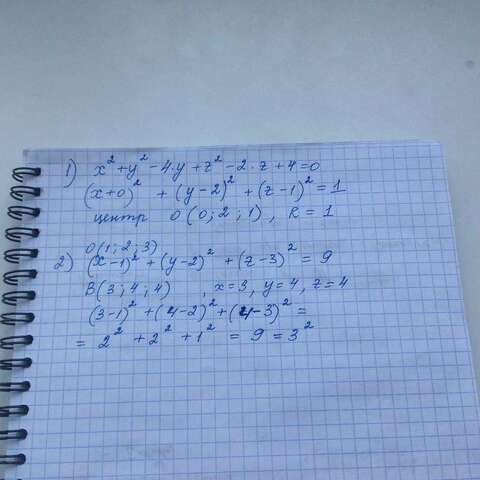 1) x² + y² - 4·y + z² - 2·z + 4 = 0
(x+0)² + (y-2)² + (z-1)² = 1
центр O(0; 2; 1), R = 1
O(1; 2; 3)
2) (x-1)² + (y-2)² + (z-3)² = 9
B(3; 4; 4) , x=3, y=4, z=4
(3-1)² + (4-2)² + (4-3)² =
= 2² + 2² + 1² = 9 = 3²